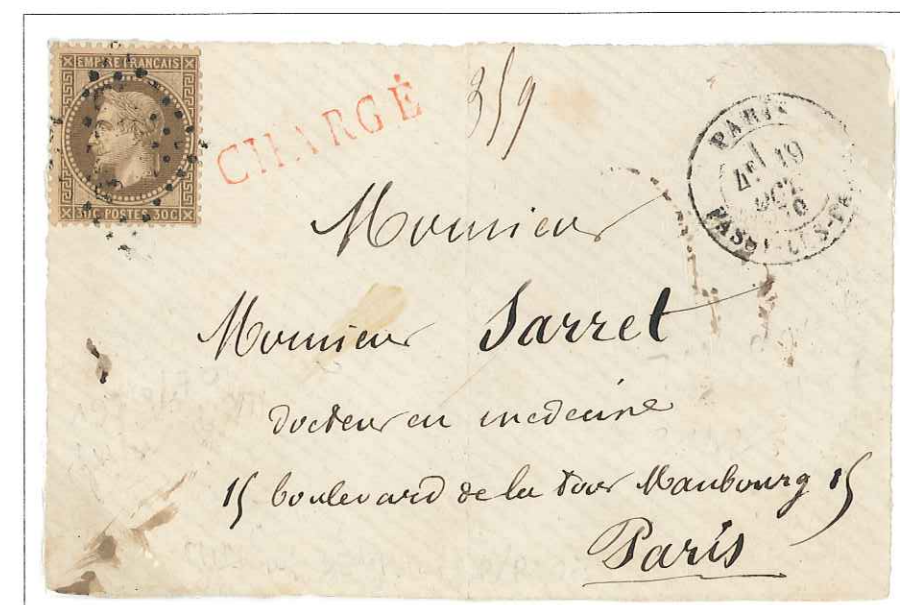 EMPIRE FRANCAIS
30C POSTES 30C
CHARGÉ
3/9
PARIS
19
OCT.
70
Monsieur
Monsieur Sarret
docteur en medecine
15 boulevard de la tour Maubourg 15
Paris